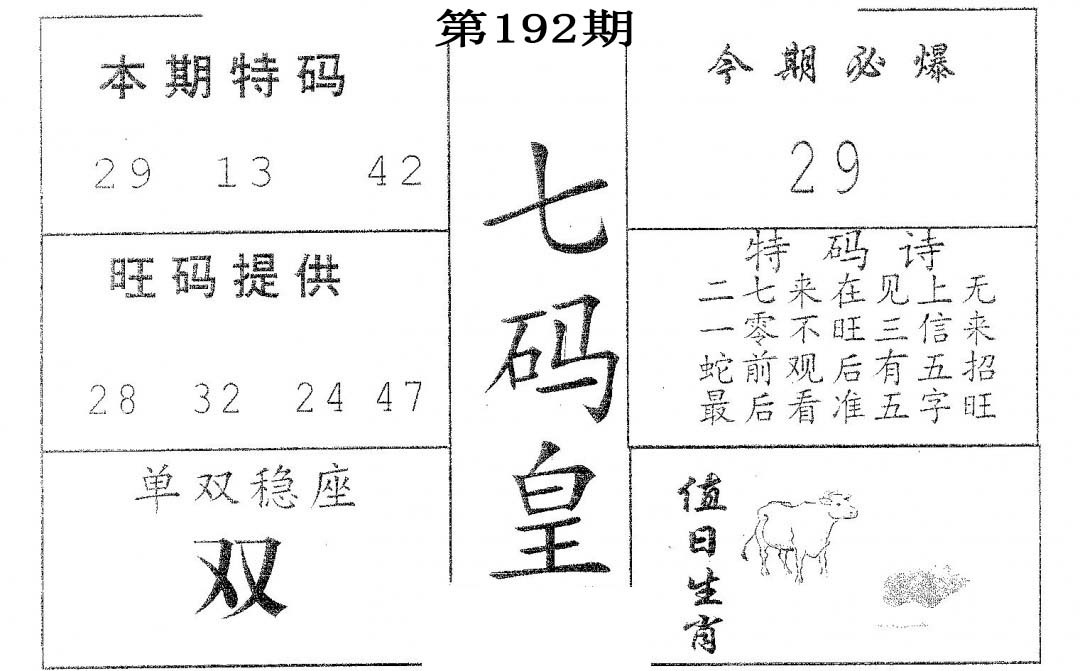 第192期
本期特码
29 13 42
旺码提供
28 32 24 47
单双稳座
双
七码皇
今期必爆
29
特码诗
二七来在见上无
一零不旺三信来
蛇前观后有五招
最后看准五字旺
值日生肖